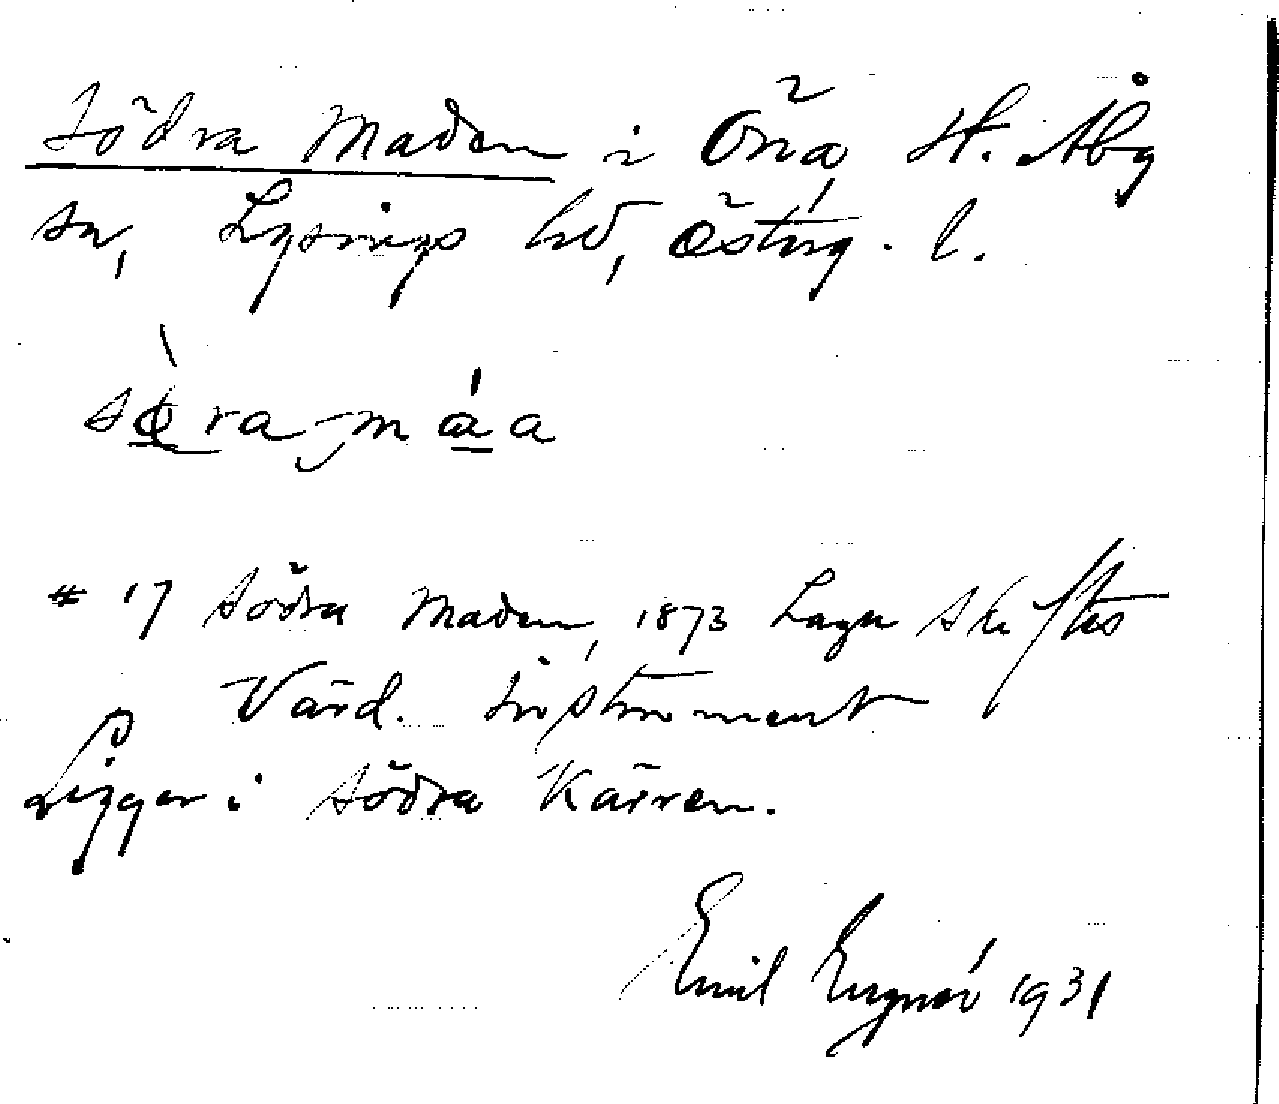 Södra Maden i Öna St. Åby
sn, Lysings hd, Östrg. l.
sø̀ra-máa
# 17 Södra Maden, 1873 Laga Skiftes
Värd. Instrument
Ligger i Södra Kärren.
Emil 1931